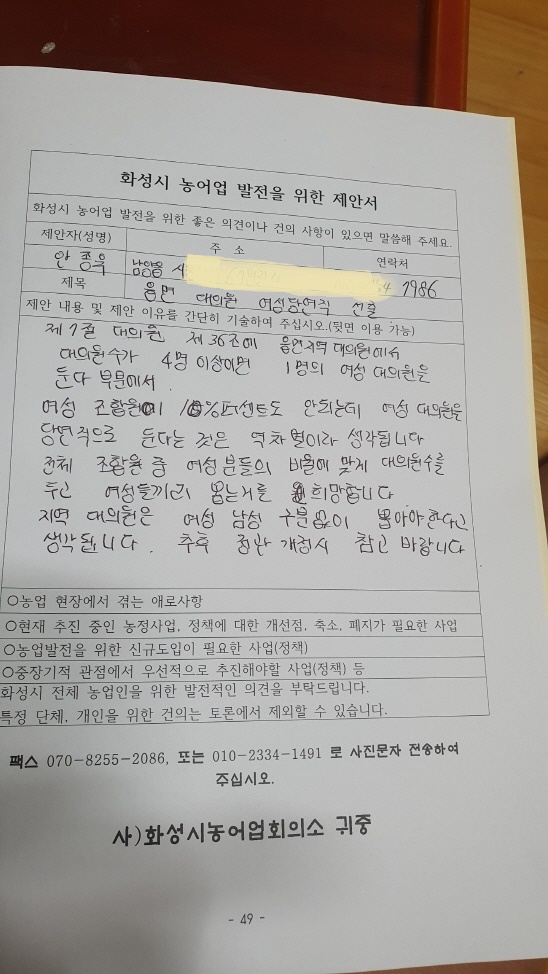 화성시 농어업 발전을 위한 제안서
화성시 농어업 발전을 위한 좋은 의견이나 건의 사항이 있으면 말씀해 주세요.
제안자(성명) 주 소 연락처
안종욱 남양읍 시 4 1986
제목 읍면 대의원 여성당연직 선출
제안 내용 및 제안 이유를 간단히 기술하여 주십시오.(뒷면 이용 가능)
제1절 대의원 제36조에 읍면지역 대의원에서
대의원수가 4명 이상이면 1명의 여성 대의원을
둔다 부문에서.
여성 조합원이 10%퍼센트도 안되는데 여성 대의원을
당연적으로 둔다는 것은 역차별이라 생각됩니다
전체 조합원 중 여성분들의 비율에 맞게 대의원수를
두고 여성들끼리 뽑는거를 희망합니다
지역 대의원은 여성 남성 구분없이 뽑아야한다고
생각됩니다. 추후 정관 개정시 참고 바랍니다
○농업 현장에서 겪는 애로사항
○현재 추진 중인 농정사업, 정책에 대한 개선점, 축소, 폐지가 필요한 사업
○농업발전을 위한 신규도입이 필요한 사업(정책)
○중장기적 관점에서 우선적으로 추진해야할 사업(정책) 등
화성시 전체 농업인을 위한 발전적인 의견을 부탁드립니다.
특정 단체, 개인을 위한 건의는 토론에서 제외할 수 있습니다.
팩스 070-8255-2086, 또는 010-2334-1491 로 사진문자 전송하여
주십시오.
사)화성시농어업회의소 귀중
- 49 -